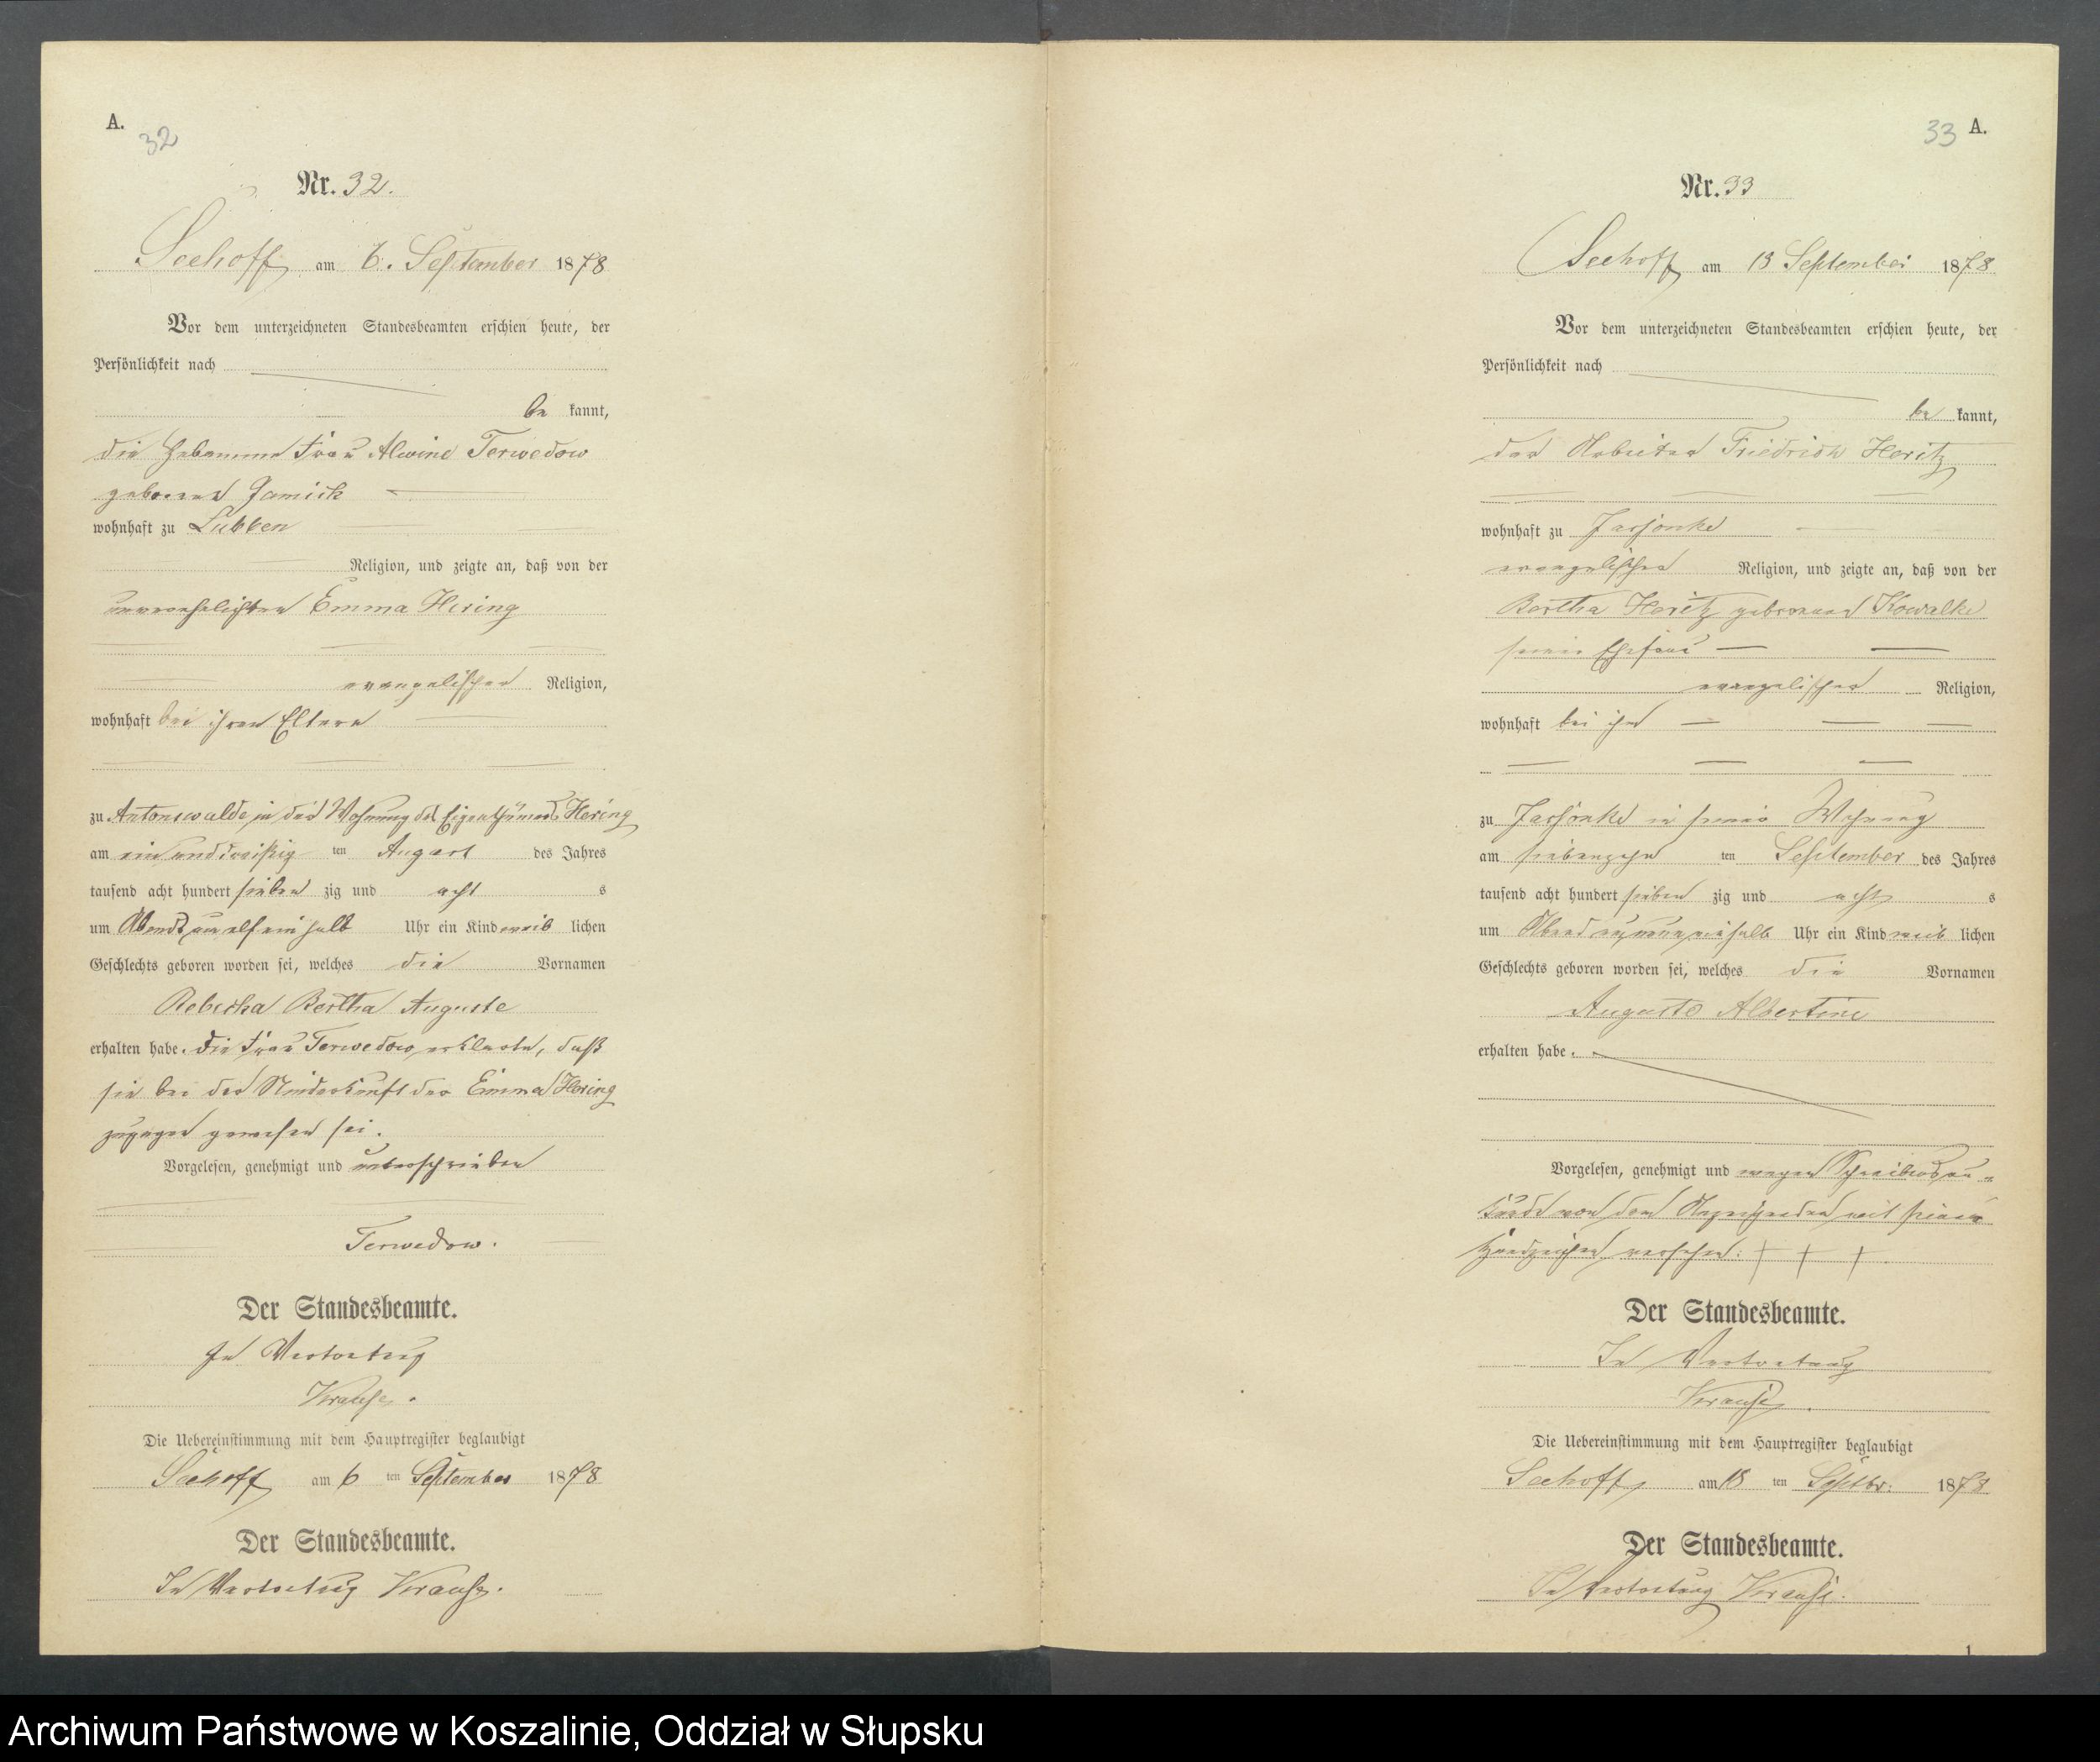 A.
32
Nr. 32.
Seehoff am 6. September 1878
Vor dem unterzeichneten Standesbeamten erschien heute, der
Persönlichkeit nach
be kannt,
die Hebamme Frau Alwine Terwedow
geborene Jamick
wohnhaft zu Lubben
Religion, und zeigte an, daß von der
unverehelichten Emma Hering
evangelischer Religion,
wohnhaft bei ihren Eltern
zu Antonswalde in der Wohnung des Eigenthümers Hering
am ein und dreißig ten August des Jahres
tausend acht hundert sieben zig und acht s
um Abends um elf ein halb Uhr ein Kind weib lichen
Geschlechts geboren worden sei, welches die Vornamen
Rebecka Bertha Auguste
erhalten habe. Die Frau Terwedow erklärte, daß
sie bei der Niederkunft der Emma Hering
zugegen gewesen sei.
Vorgelesen, genehmigt und unterschrieben
Terwedow.
Der Standesbeamte.
In Vertretung
Krause.
Die Uebereinstimmung mit dem Hauptregister beglaubigt
Seehoff am 6 ten September 1878
Der Standesbeamte.
In Vertretung Krause.
33 A.
Nr. 33
Seehoff am 18 September 1878
Vor dem unterzeichneten Standesbeamten erschien heute, der
Persönlichkeit nach
be kannt,
der Arbeiter Friedrich Heritz
wohnhaft zu Jassonke
evangelischer Religion, und zeigte an, daß von der
Bertha Heritz geborenen Kowalke
seiner Ehefrau
evangelischer Religion,
wohnhaft bei ihm
zu Jassonke in seiner Wohnung
am siebenzehn ten September des Jahres
tausend acht hundert sieben zig und acht s
um Abend um neun ein halb Uhr ein Kind weib lichen
Geschlechts geboren worden sei, welches die Vornamen
Auguste Albertine
erhalten habe.
Vorgelesen, genehmigt und wegen Schreibensun-
kunde von dem Anzeigenden mit seinem
Handzeichen versehen: + + +
Der Standesbeamte.
In Vertretung
Krause.
Die Uebereinstimmung mit dem Hauptregister beglaubigt
Seehoff am 18 ten Septbr. 1878
Der Standesbeamte.
In Vertretung Krause.
1
Archiwum Państwowe w Koszalinie, Oddział w Słupsku